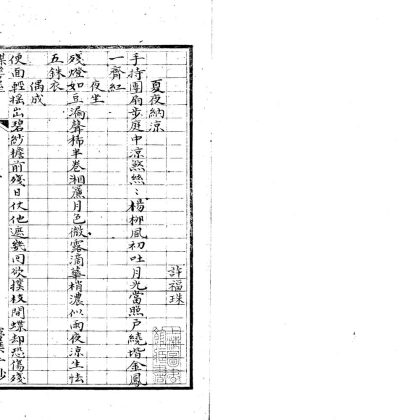 夏夜納涼
許福珠
手持團扇步庭中涼煞絲絲楊柳風初吐月光當照戶繞堦金鳳
一齊紅
夜坐
殘燈如豆漏聲稀半卷湘簾月色微露滴華梢濃似雨夜涼生怯
五銖衣
偶成
便面輕搖出碧紗檐前殘日伏他遮幾回欲撲枝間蝶却恐傷殘